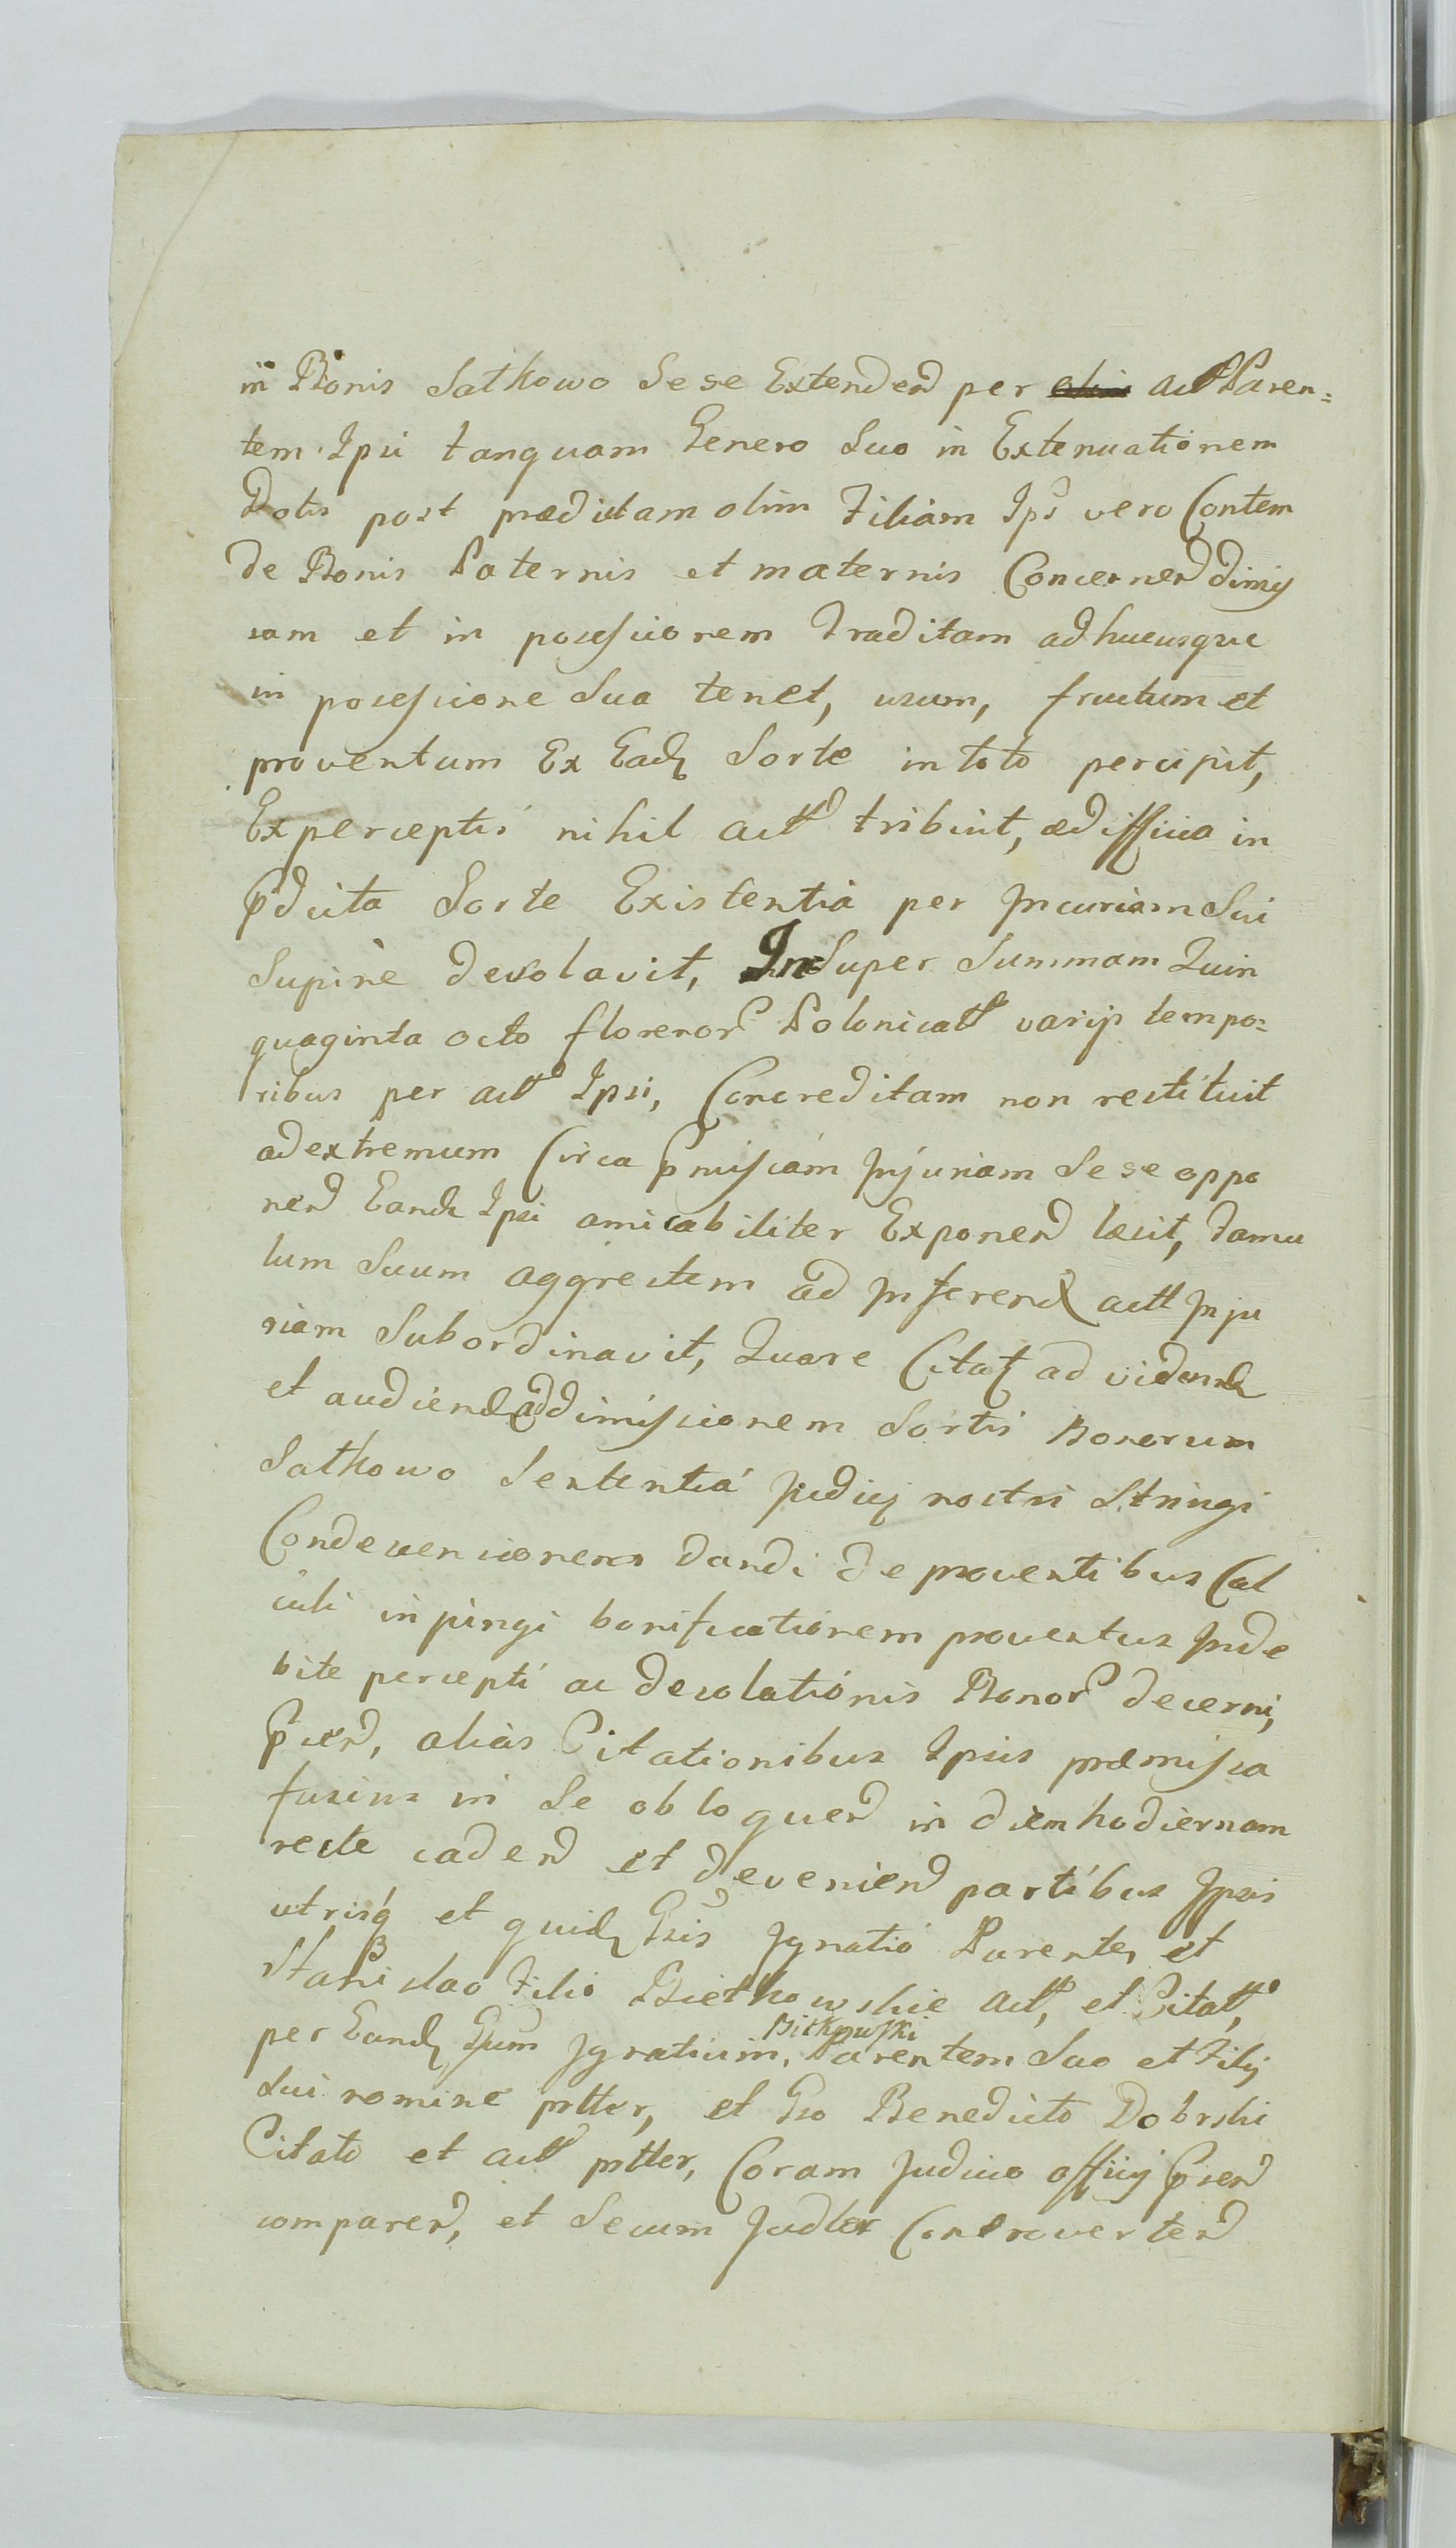 in Bonis Sathowo Sese Extenden per act Paren=
tem Ipsi tanquam Genero Suo in Extenuationem
Dotis post prædictam olim Filiam Ips vero Contem
de Bonis Paternis et maternis Concernen dimis
sam et in possessionem traditam adhucusque
in possessione Sua tenet, usum, fructum et
proventum Ex Ead Sorte in toto percipit,
Ex perceptis nihil act tribuit, ædifficia in
pdicta Sorte Existentia per Incuriam Sui
Supinè desolavit, In Super Summam Quin
quaginta octo florenor Polonicall varijs tempo=
ribus per act Ipsi, Concreditam non restituit
ad extremum Circa pmissam Injuriam Sese oppo
nen Eand Ipsi amicabiliter Exponen læsit, Famu
lum Suum aggrestem ad Inferend act Inju
riam Subordinavit, Quare Citat ad vidend
et audiend addimissionem Sortis Bonorum
Sathowo Sententiá Judicij nostri Stringi
Condescensionem dandi de proventibus Cal
culi inpingi bonificationem proventus Inde
bite percepti ac desolationis Bonor decerni,
psen, alias Citationibus Ipsis præmissa
fusius in Se obloquen in diem hodiernam
recte caden et devenien partibus Ipsis
utrisq et quid Gsis Ignatio Parente, et
Stanislao Filio Biethowskie act, et Citat,
per Eund Gsum Ignatium, Bitkowski Parentem Suo et Filij
Sui nomine prtter, et Gso Benedicto Dobrski
Citato et act prtter, Coram Judicio officij psen
comparen, et Secum Judter Controverten